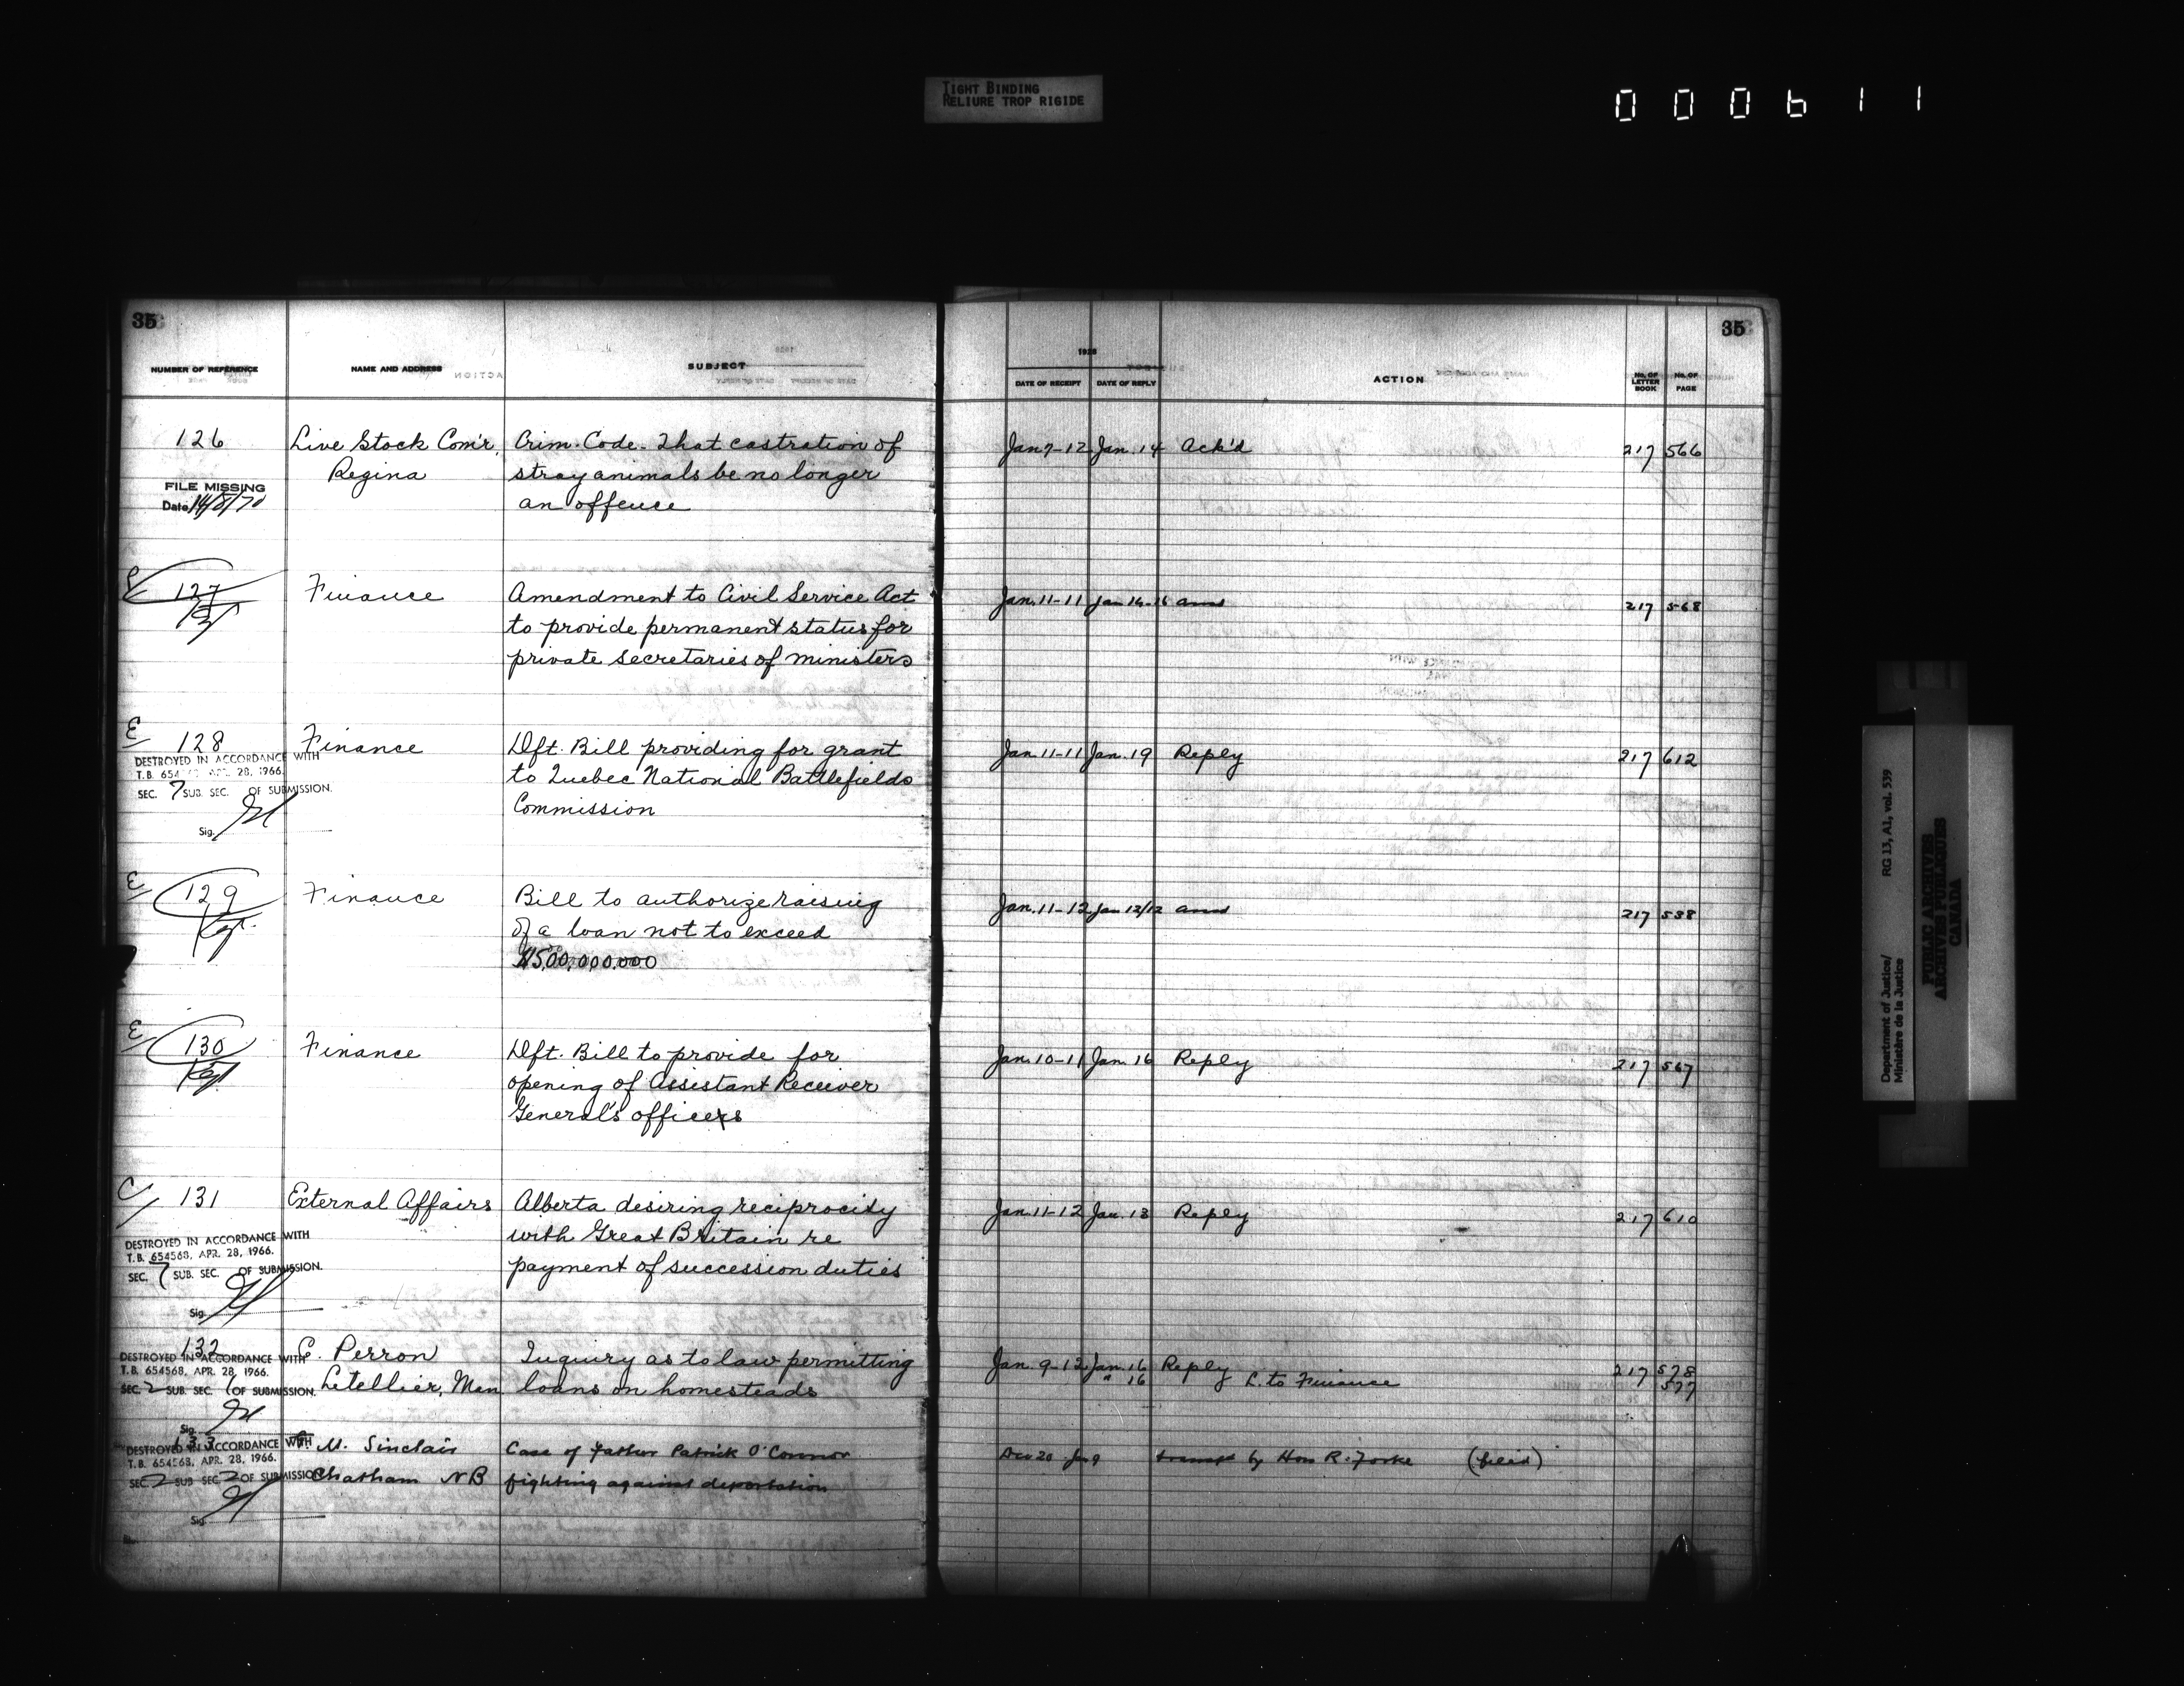 TIGHT BINDING
RELIURE TROP RIGIDE
000611
35
35
NUMBER OF REFERENCE NAME AND ADDRESS SUBJECT
DATE OF RECEIPT DATE OF REPLY ACTION No. OF LETTER BOOK No. OF PAGE
1928
126 Live Stock Com'r, Crim. Code. That castration of Jan 7-12 Jan. 14 Ack'd 217 566
Regina stray animals be no longer
FILE MISSING
Date 14/8/70 an offence
127 Finance Amendment to Civil Service Act Jan. 11-11 217 568
to provide permanent status for
private secretaries of ministers
E 128 Finance Dft. Bill providing for grant Jan. 11-11 Jan. 19 Reply 217 612
DESTROYED IN ACCORDANCE WITH
T.B. 654 APR. 28, 1966. to Quebec National Battlefields
SEC. 7 SUB. SEC. OF SUBMISSION. Commission
Sig.
E 129 Finance Bill to authorize raising Jan. 11-12 Jan 12/12 217 538
of a loan not to exceed
$500,000,000
E 130 Finance Dft. Bill to provide for Jan. 10-11 Jan. 16 Reply 217 567
opening of Assistant Receiver
General's offices
C 131 External Affairs Alberta desiring reciprocity Jan. 11-12 Jan. 18 Reply 217 610
DESTROYED IN ACCORDANCE WITH with Great Britain re
T.B. 654568, APR. 28, 1966.
SEC. 7 SUB. SEC. OF SUBMISSION. payment of succession duties
Sig.
132 E. Perron Inquiry as to law permitting Jan. 9-12 Jan. 16 Reply 217 578
DESTROYED IN ACCORDANCE WITH
T.B. 654568, APR. 28, 1966.
SEC. 2 SUB. SEC. 1 OF SUBMISSION. Letellier, Man loans on homesteads " 16 L. to Finance 577
Sig.
133 M. Sinclair Case of Father Patrick O'Connor Dec 20 Jan 9 by Hon R. Forke (filed)
DESTROYED IN ACCORDANCE WITH
T.B. 654568, APR. 28, 1966.
SEC. 2 SUB SEC. 2 OF SUBMISSION Chatham NB fighting against deportation
Sig.
Department of Justice/ RG 13, A1, vol. 539
Ministère de la Justice
PUBLIC ARCHIVES
ARCHIVES PUBLIQUES
CANADA